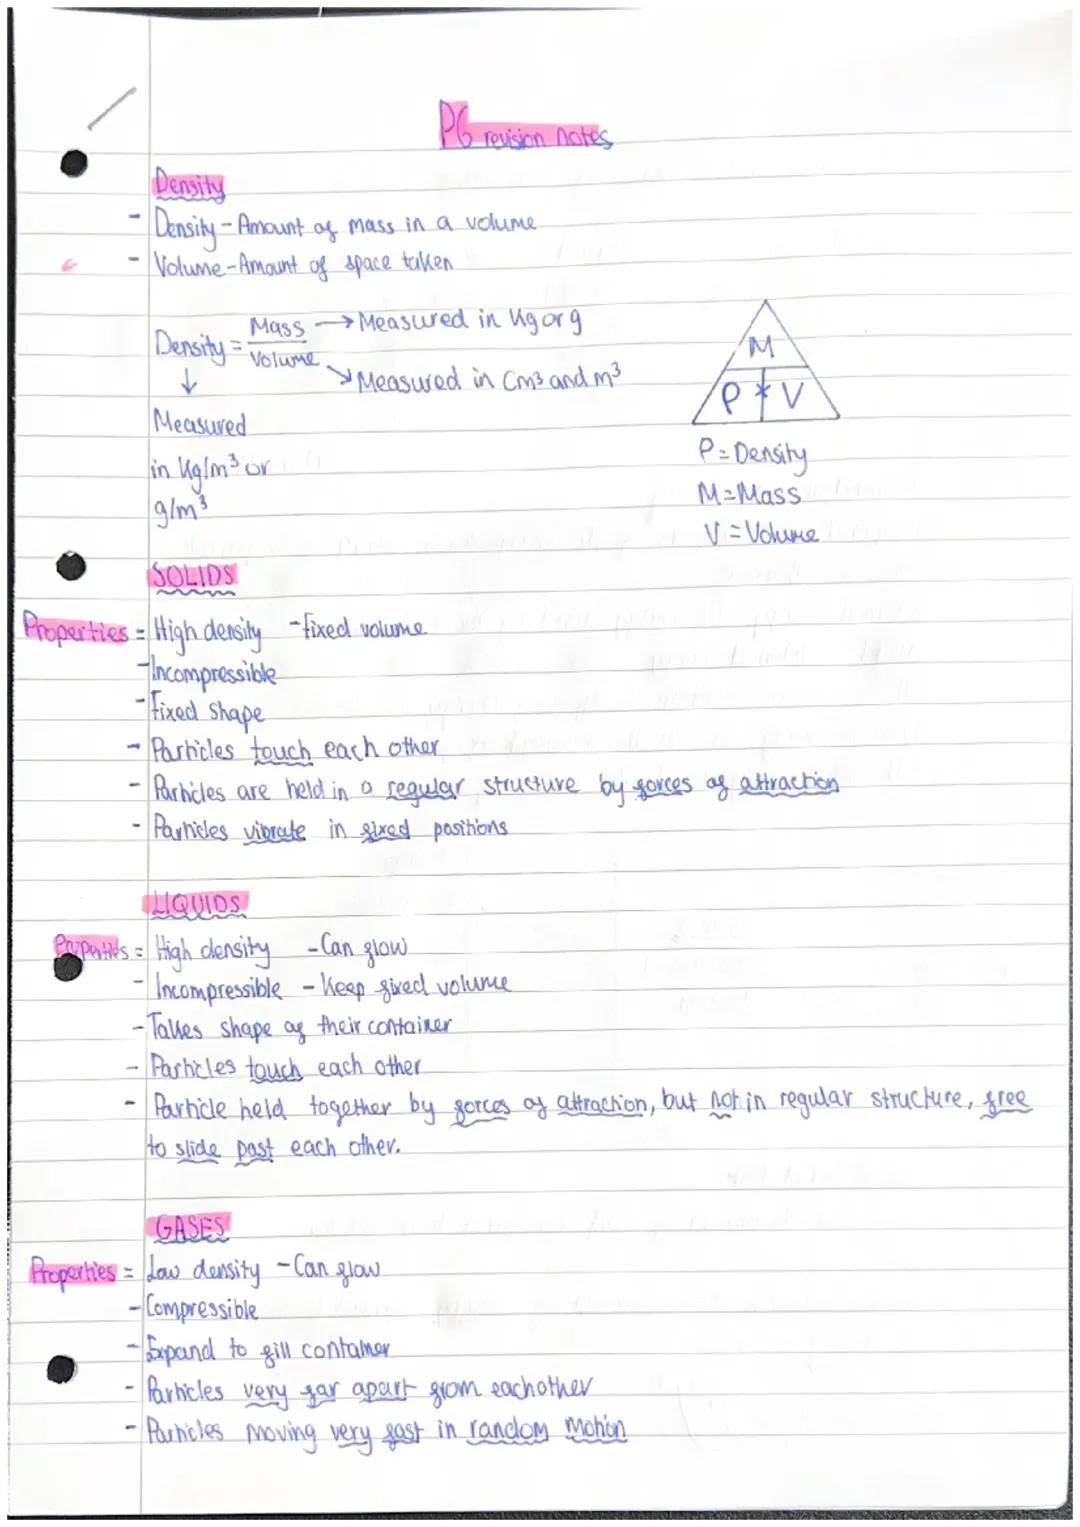 P6 revision notes
Density
- Density - Amount of mass in a volume
- Volume - Amount of space taken
Density = Mass / Volume
Mass → Measured in Kg or g
Volume → Measured in Cm³ and m³
↓
Measured
in Kg/m³ or
g/m³
M
P * V
P = Density
M = Mass
V = Volume
SOLIDS
Properties = High density - fixed volume
- Incompressible
- Fixed shape
- Particles touch each other
- Particles are held in a regular structure by forces of attraction
- Particles vibrate in fixed positions
LIQUIDS
Properties = High density - Can flow
- Incompressible - Keep fixed volume
- Takes shape of their container
- Particles touch each other
- Particle held together by forces of attraction, but not in regular structure, free
to slide past each other.
GASES
Properties = Low density - Can flow
- Compressible
- Expand to fill container
- Particles very far apart from eachother
- Particles moving very fast in random motion